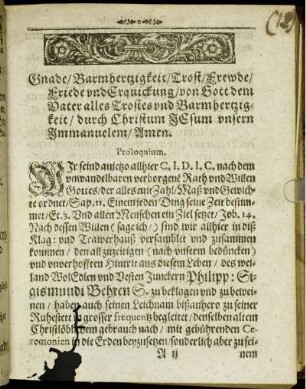 Gnade/ Barmhertzigkeit/ Trost/ Frewde/
Friede vnd Erquickung/ von Gott dem
Vater alles Trostes vnd Barmhertzig-
keit/ durch Christum JEsum vnsern
Immanuelem/ Amen.
Proloquium.
WIr seind anjetzo allhier C. I. D. I. C. nach dem
vnwandelbaren verborgenẽ Rath vnd Willen
Gottes/ der alles mit Zahl/ Maß vnd Gewich-
te ordnet/ Sap. 11. Einem jeden Ding seine Zeit bestim-
met/ Ec. 3. Vnd allen Menschen ein Ziel setzet/ Job. 14.
Nach dessen Willen (sage ich/) sind wir allhier in diß
Klag: vnd Trawerhauß versamblet vnd zusammen
kommen/ den allzuzeitigen (nach vnserm bedüncken)
vnd vnverhofften Hinritt aus diesem Leben/ des wei-
land WolEdlen vnd Vesten Junckern Philipp: Si-
gismundi Behren S. zu beklagen vnd zu bewei-
nen/ haben auch seinen Leichnam bißanhero zu seiner
Ruhestett grosser frequentz begleitet/ denselben altem
Christlöblichem gebrauch nach/ mit gebührenden Ce-
remonien in die Erden beyzusetzen/ sonderlich aber zu sei-
A ij nem